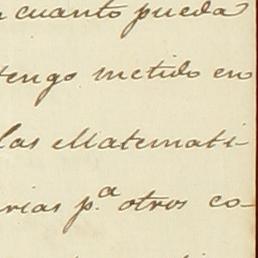 cuanto pueda
tengo metido en
las Matemati-
rias p.ª otros co-